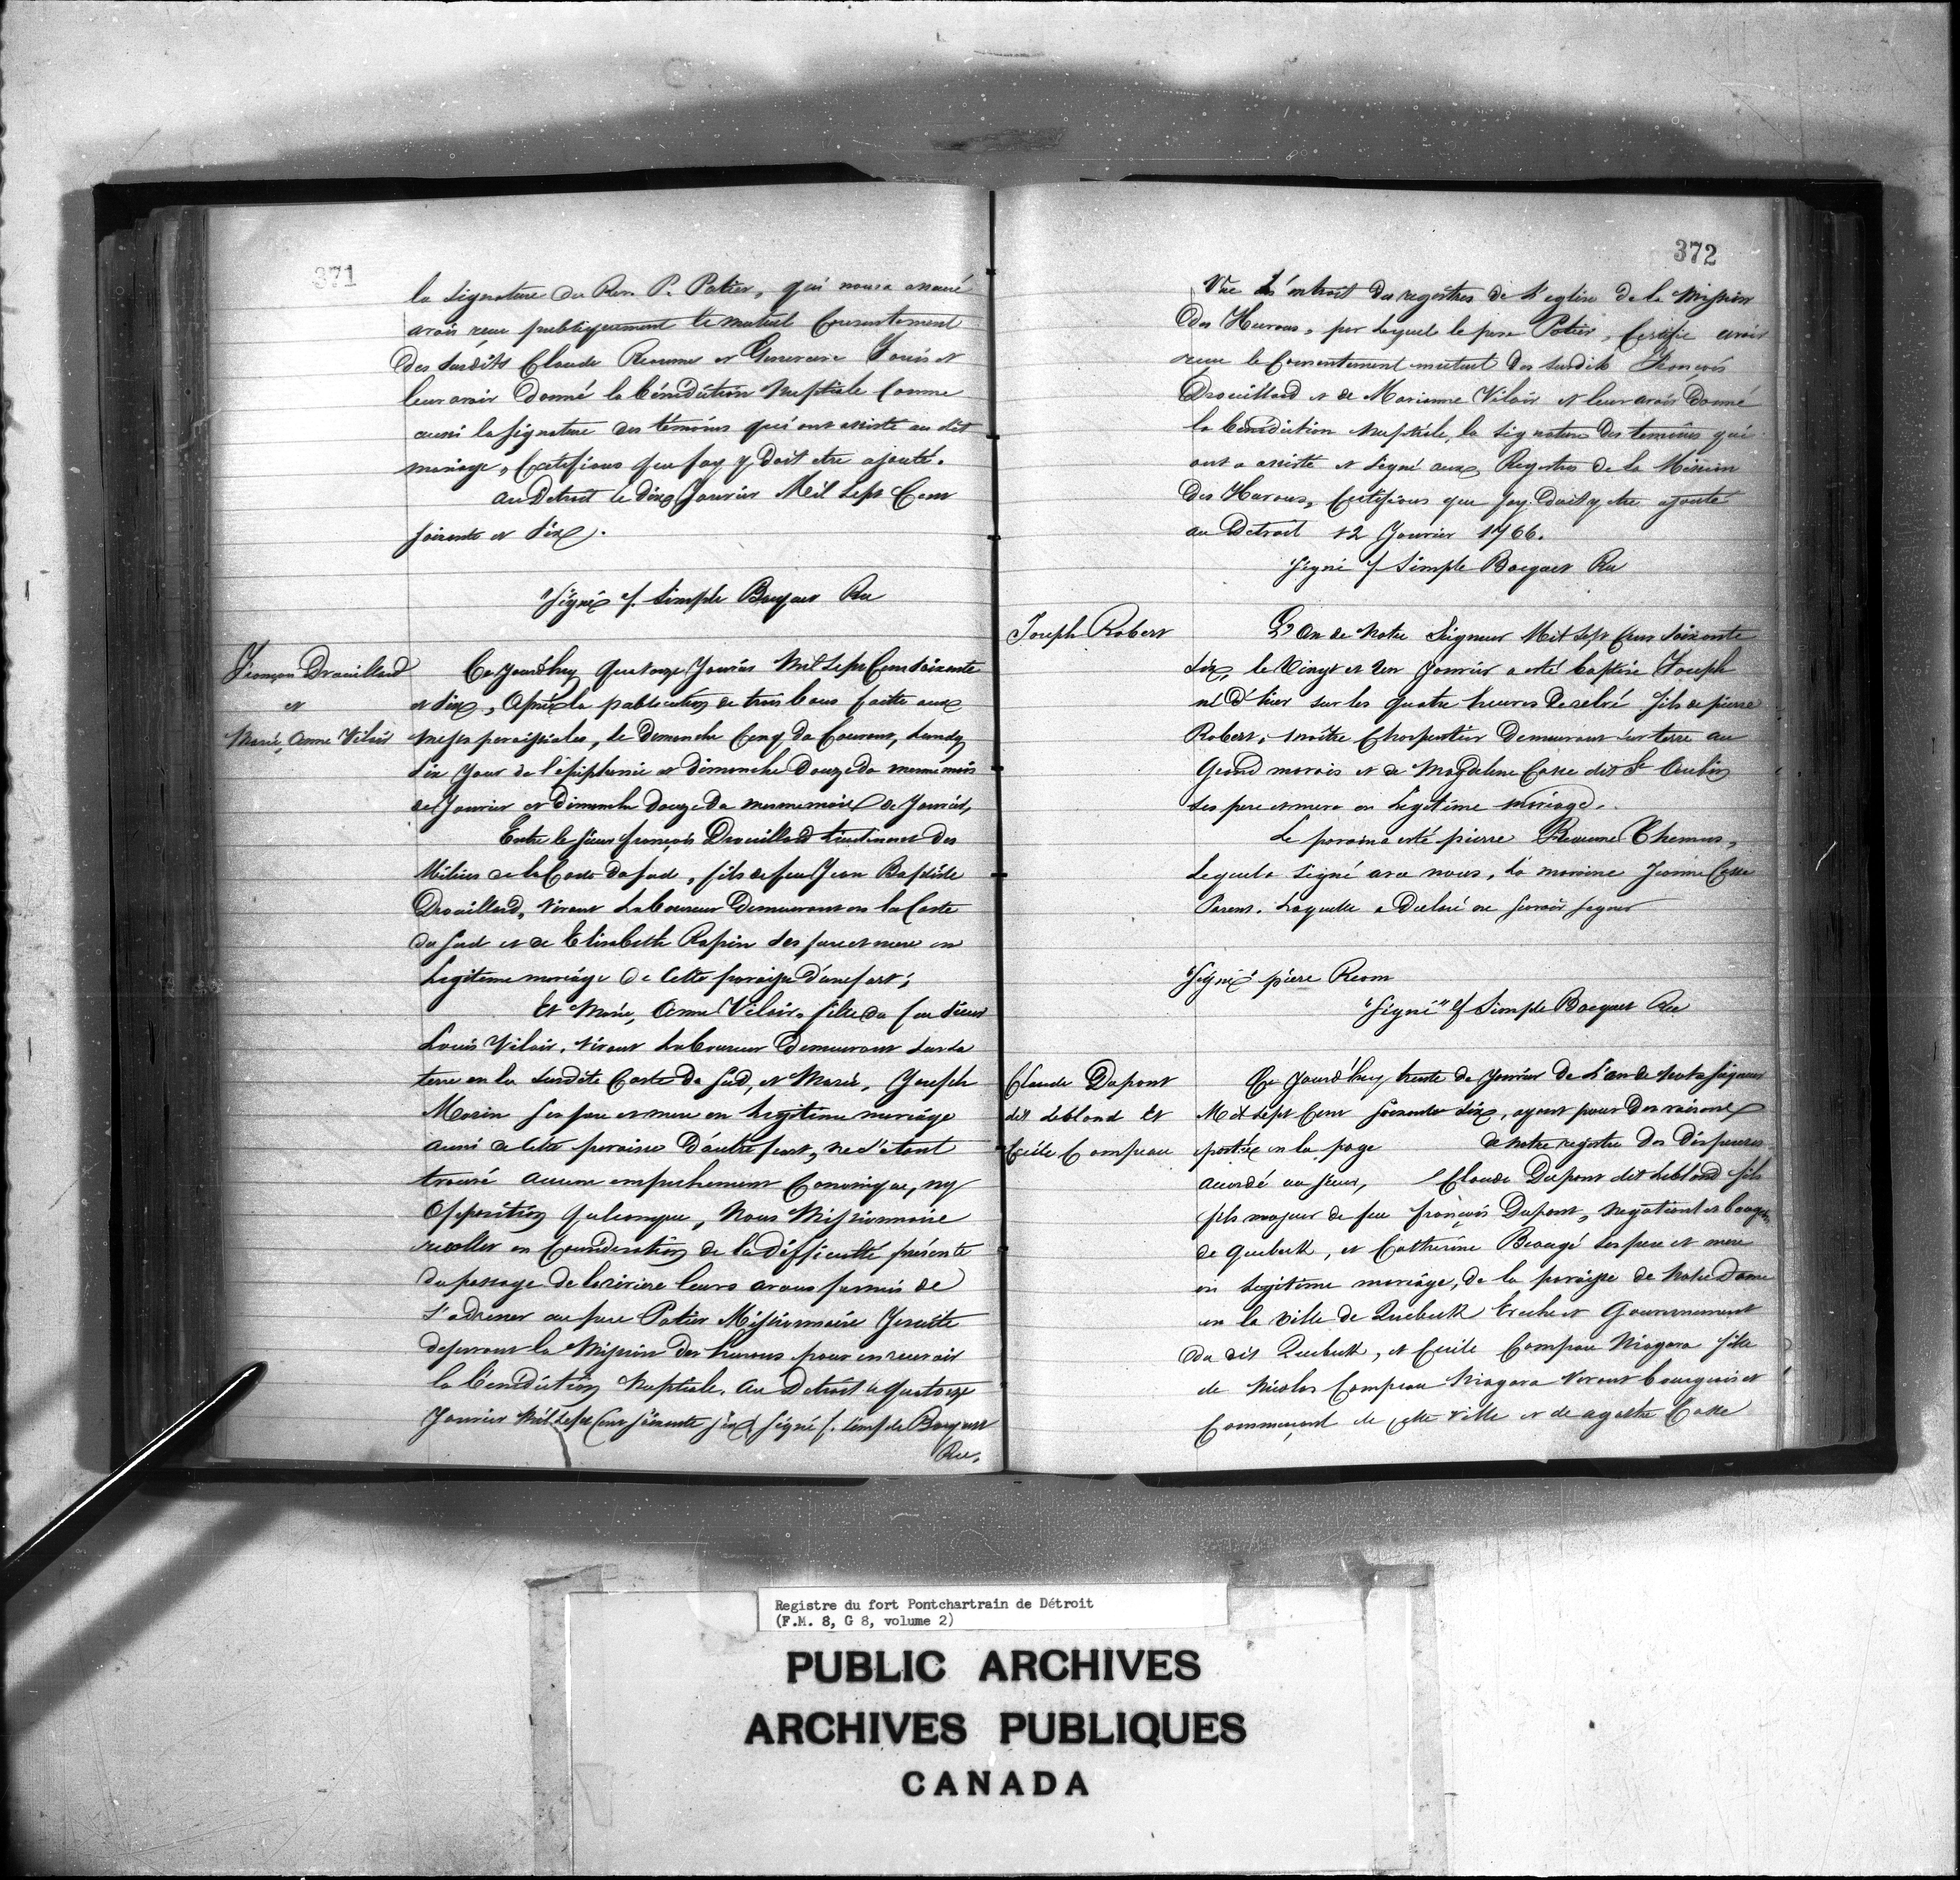 371
la signature du Rev. P. Potier, qui nous a assuré
avoir reçu publiquement le mutuel Consentement
des susdits Claude Reaume et Genevieve Janis et
leur avoir Donné la bénédiction Nuptiale Comme
aussi la signature des témoins qui ont assisté au dit
mariage, Certifions que foy y doit etre ajouté.
au Detroit le dix Janvier Mil Sept Cent
soixante et six.
Signé f. Simple Bocquet Rec
François Drouillard
et
Marie, Anne Vilair
Ce jourd'huy quatorze Janvier Mil Sept Cent soixante
et six, Après la publication de trois bans faitte aux
messes paroissiales, le Dimanche Cinq du Courant, Lundy
six jour de l'épiphanie et dimanche Douze du meme mois
de Janvier et Dimanche douze du mesme mois de Janvier,
Entre le sieur françois Drouillard lieutenant des
Milices de la Coste du sud, fils de feu Jean Baptiste
Drouillard, Vivant Laboureur Demeurant en la Coste
du Sud et de Elisabeth Rapin ses pere et mere en
Legitime mariâge de Cette paroisse d'une part;
Et Marie, Anne Vilair, fille du feu Sieur
Louis Vilair, Vivant Laboureur Demeurant sur sa
terre en la susdite Coste du Sud, et Marie, Joseph
Morin ses pere et mere en legitime mariâge
aussi de cette paroisse D'autre part, ne s'etant
trouvé aucun empechement Canonique, ny
Opposition quelconque, Nous Missionnaire
recollet en Consideration de la difficulté présente
du passage de la riviere leurs avons permis de
s'adresser au pere Potier Missionnaire Jesuite
desservant la Mission des hurons pour en recevoir
la bénédiction Nuptiale. au Detroit le quatorze
Janvier Mil Sept Cent soixante six, Signé f. Simple Bocquet
Rec.
372
Vue L'éxtrait des registres de L'eglise de la Mission
Des Hurons, par lequel le pere Potier, Certifie avoir
reçu le Consentement mutuel des susdits François
Drouillard et de Marianne Vilair et leur avoir Donné
la bénédiction nuptiale, la signature des temoins qui
ont assisté et signé aux Registres de la Mission
Des Hurons, Certifions que foy doit y etre ajouté
au Detroit 12 Janvier 1766.
Signé f Simple Bocquet Rec
Joseph Robert
L'An de Notre Seigneur Mil Sept Cent soixante
six, le Vingt et Un Janvier a esté baptisé Joseph
né d'hier sur les quatre heures de relevé fils de pierre
Robert, Maître Charpentier Demeurant sur terre au
Grand marais et de Magdelene Casse dit St Aubin
ses pere et mere en Legitime mariage.
Le parain a esté pierre Reaume Themus,
Lequel a signé avec nous, La maraine Jeanne Casse
Parent, Laquelle a Declaré ne savoir signer
"Signé" piere Reom
"Signé" f Simple Bocquet Rec
Claude Dupont
dit Leblond Et
Cecile Campeau
Ce Jourd'huy trente de Janvier de L'an de Notre Seigneur
Mil Sept Cent soixante six, ayant pour des raisons
portée en la page de notre registre des Dispenses
accordé au sieur, Claude Dupont dit Leblond fils
fils majeur de feu françois Dupont, Negotiant et bourgeois
de Quebeck, et Catherine Beaugé ses pere et mere
en Legitime mariâge, de la paroisse de Notre Dame
en la ville de Quebeck Eveché et Gouvernement
du dit Quebeck, et Cecile Campau Niagara fille
de Nicolas Campeau Niagara Vivant bourgeois et
Commerçant de cette Ville et de agathe Casse
Registre du fort Pontchartrain de Détroit
(F.M. 8, G 8, volume 2)
PUBLIC ARCHIVES
ARCHIVES PUBLIQUES
CANADA